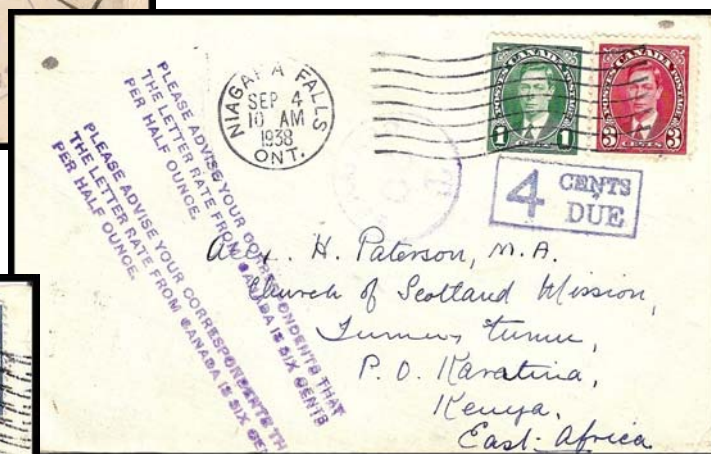 NIAGARA FALLS
SEP 4
10 AM
1938
ONT.
POSTES CANADA POSTAGE
1 1
CENT
POSTES CANADA POSTAGE
3 3
CENTS
4 CENTS
DUE
PLEASE ADVISE YOUR CORRESPONDENTS THAT
THE LETTER RATE FROM CANADA IS SIX CENTS
PER HALF OUNCE.
PLEASE ADVISE YOUR CORRESPONDENTS TH
THE LETTER RATE FROM CANADA IS SIX CEN
PER HALF OUNCE.
Alex. H. Paterson, M.A.
Church of Scotland Mission,
Tumu Tumu,
P. O. Karatina,
Kenya,
East Africa